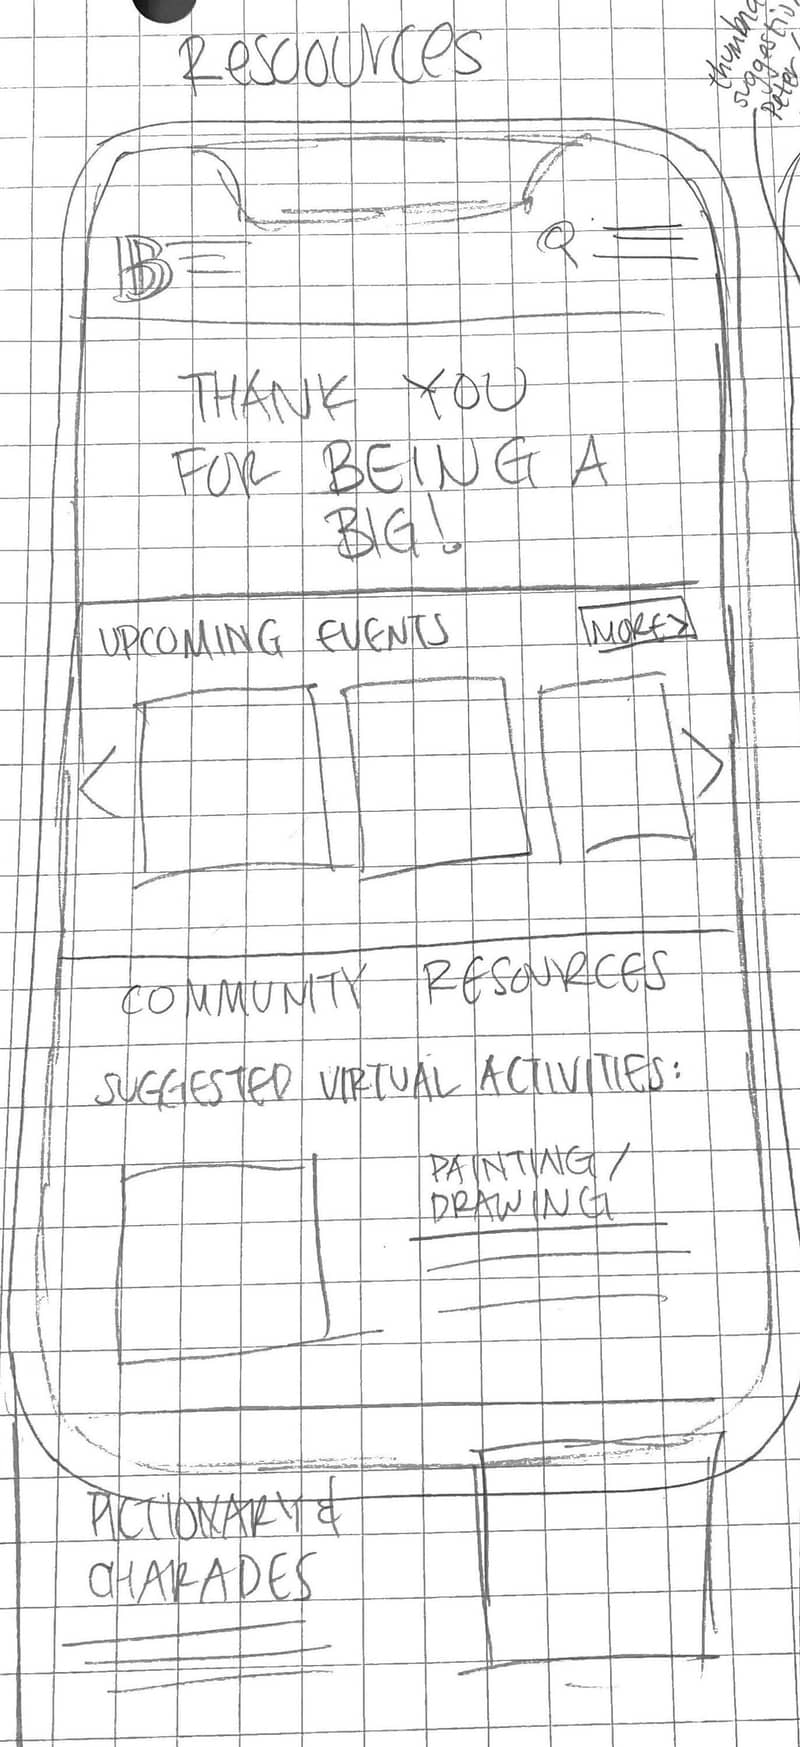 Resources
thumbnail
suggestion
Peter
B
THANK YOU
FOR BEING A
BIG!
UPCOMING EVENTS
MORE >
COMMUNITY RESOURCES
SUGGESTED VIRTUAL ACTIVITIES:
PAINTING/
DRAWING
PICTIONARY &
CHARADES